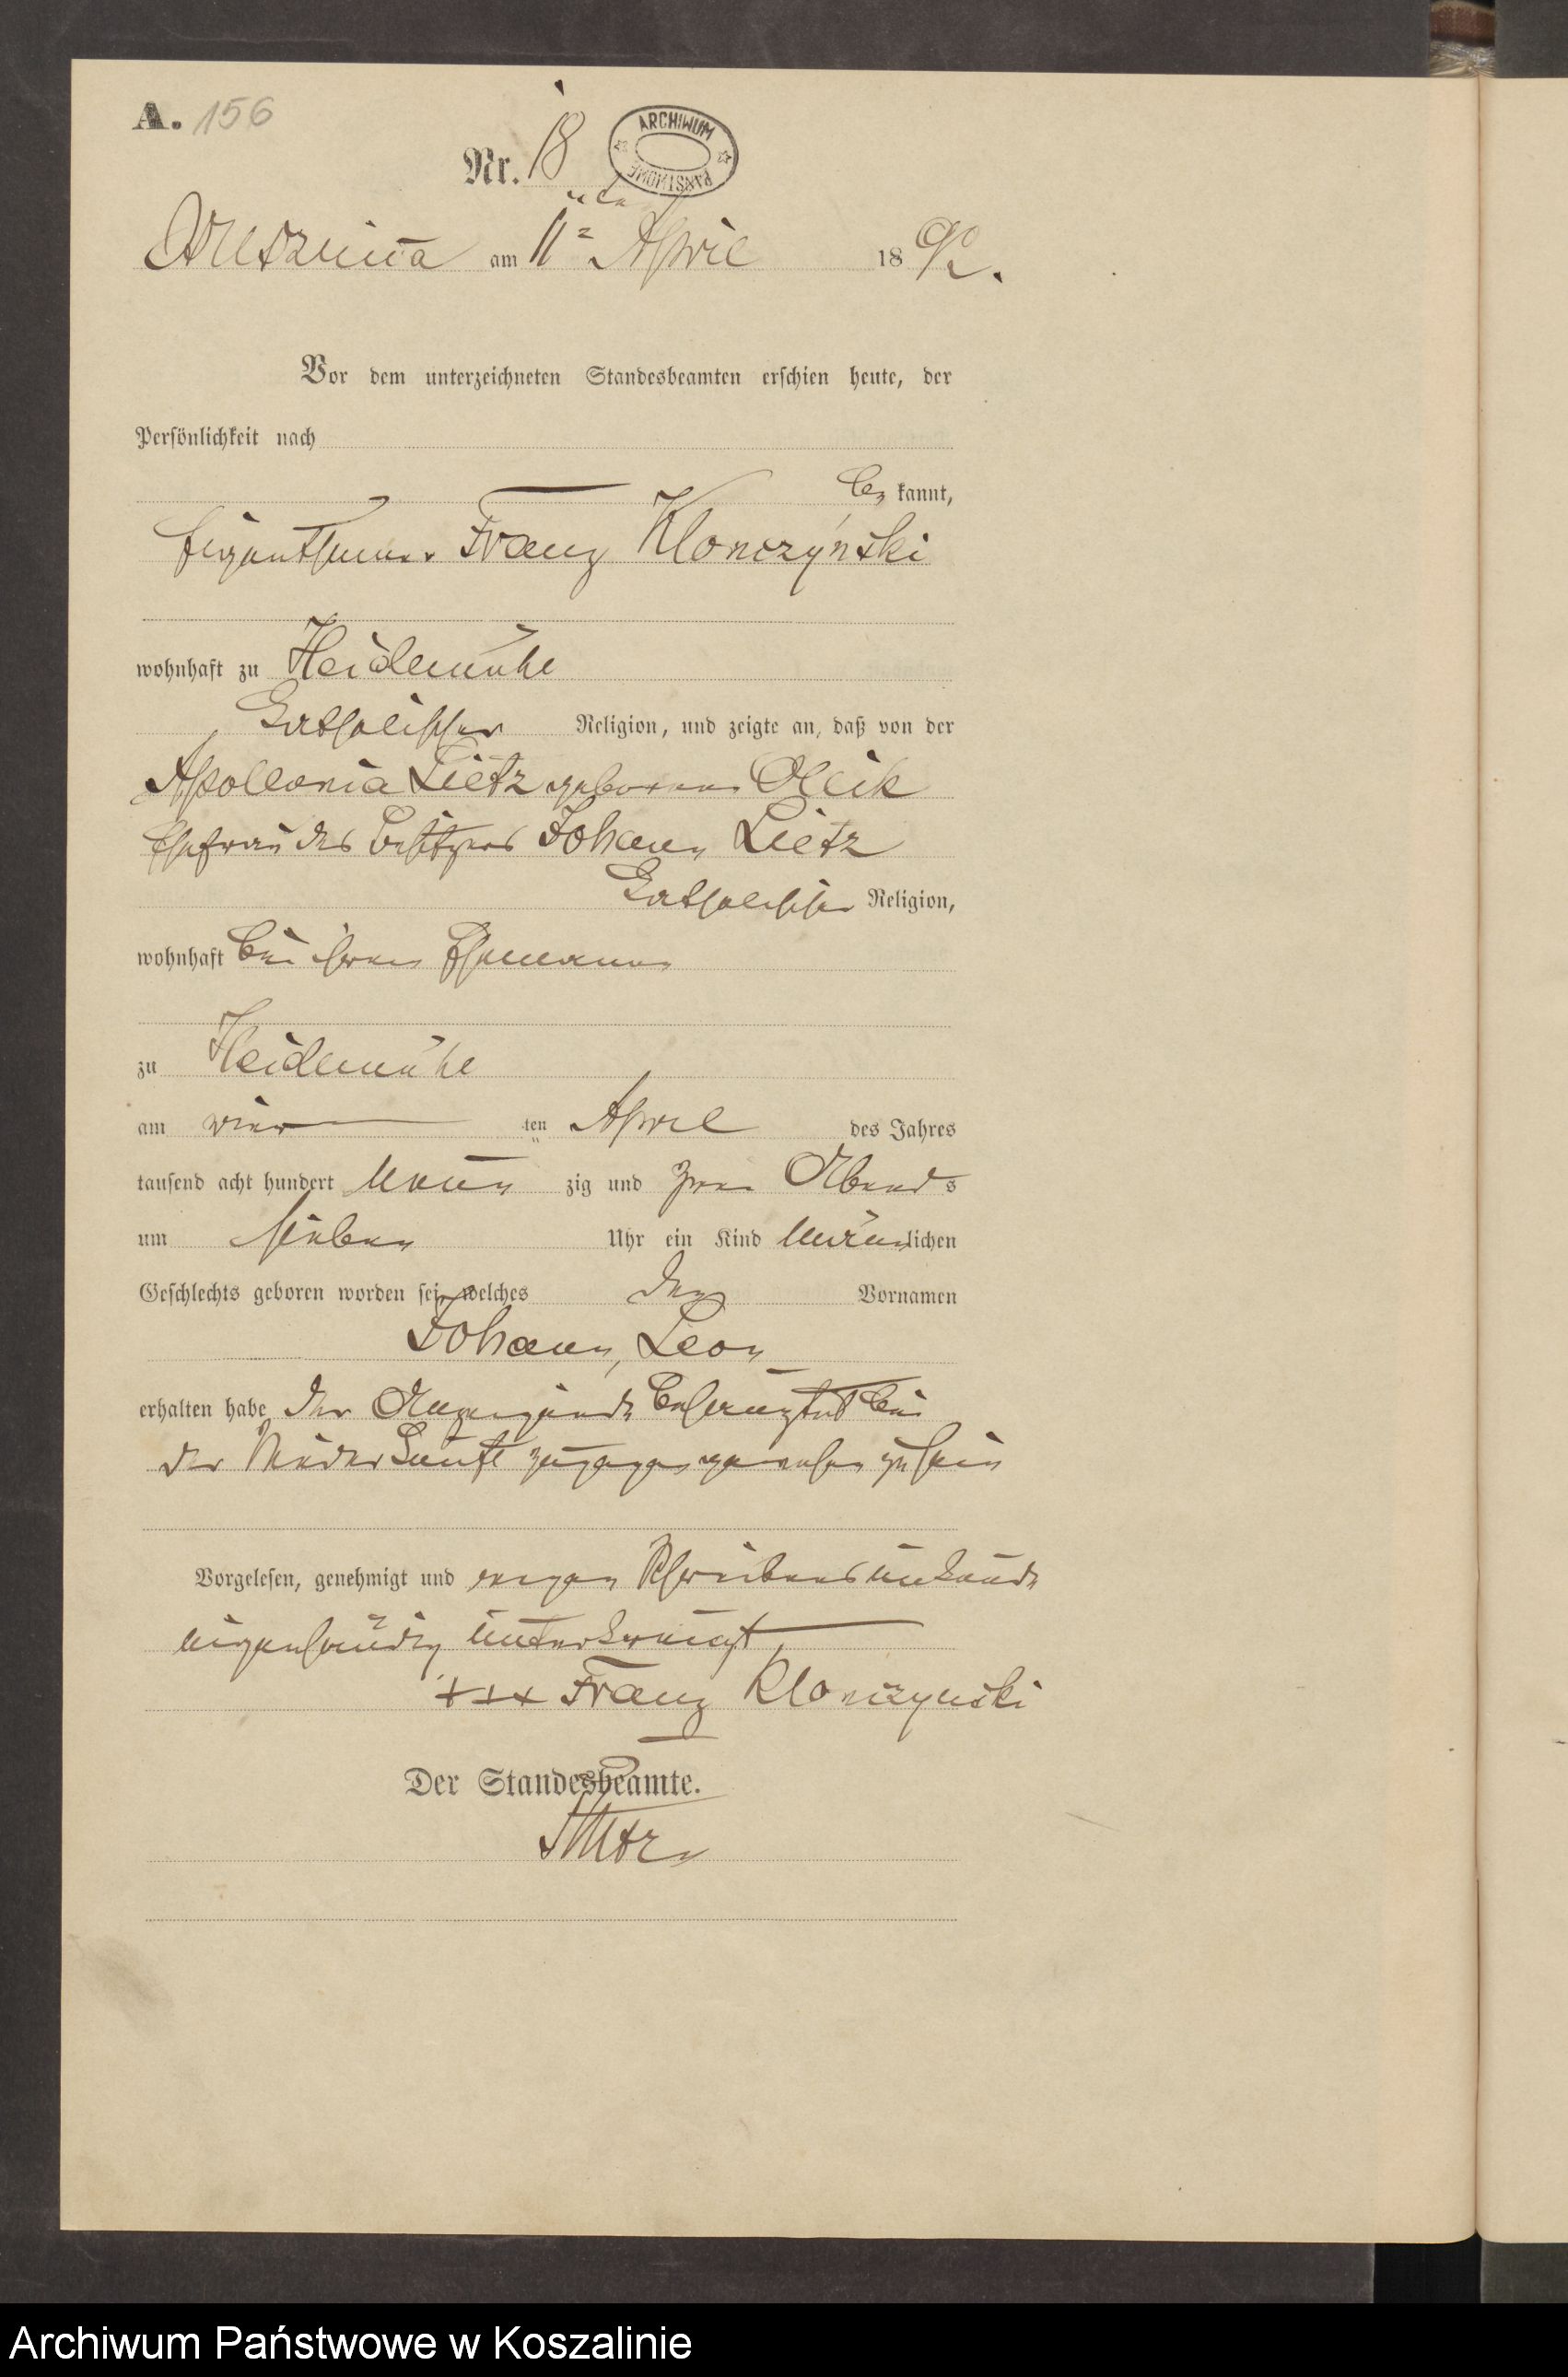 A. 156
Nr. 18
ARCHIWUM PAŃSTWOWE
am 11ten April 1892.
Vor dem unterzeichneten Standesbeamten erschien heute, der
Persönlichkeit nach
be kannt,
Eigenthümer Franz Klonczyński
wohnhaft zu Heidemühl
katholischer Religion, und zeigte an, daß von der
Apollonia Lietz geborene Oleik
Ehefrau des Besitzers Johann Lietz
katholischer Religion,
wohnhaft bei ihrem Ehemanne
zu Heidemühl
am vier ten April des Jahres
tausend acht hundert neun zig und zwei Abends
um sieben Uhr ein Kind männlichen
Geschlechts geboren worden sei, welches den Vornamen
Johann, Leon
erhalten habe der Anzeigende bei
der Niederkunft zugegen gewesen zu sein
Vorgelesen, genehmigt und wegen Schreibensunkunde
eigenhändig unterkreuzt
+++ Franz Klonczynski
Der Standesbeamte.
Archiwum Państwowe w Koszalinie